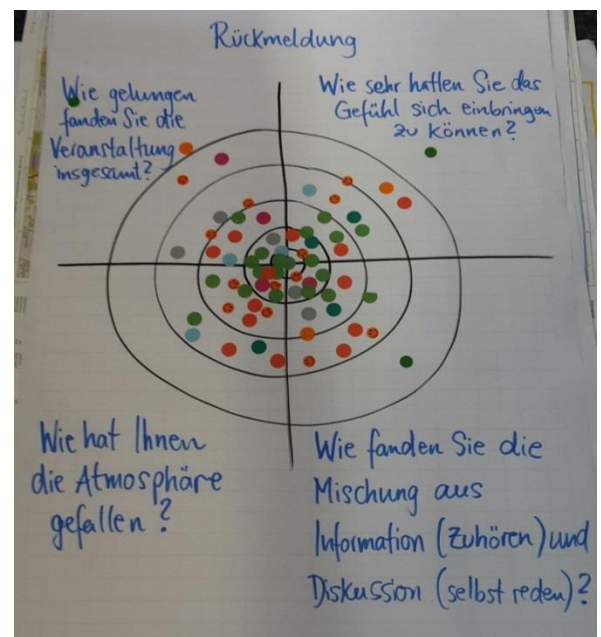 Rückmeldung
Wie gelungen
fanden Sie die
Veranstaltung
insgesamt?
Wie sehr hatten Sie das
Gefühl sich einbringen
zu können?
Wie hat Ihnen
die Atmosphäre
gefallen?
Wie fanden Sie die
Mischung aus
Information (Zuhören) und
Diskussion (selbst reden)?